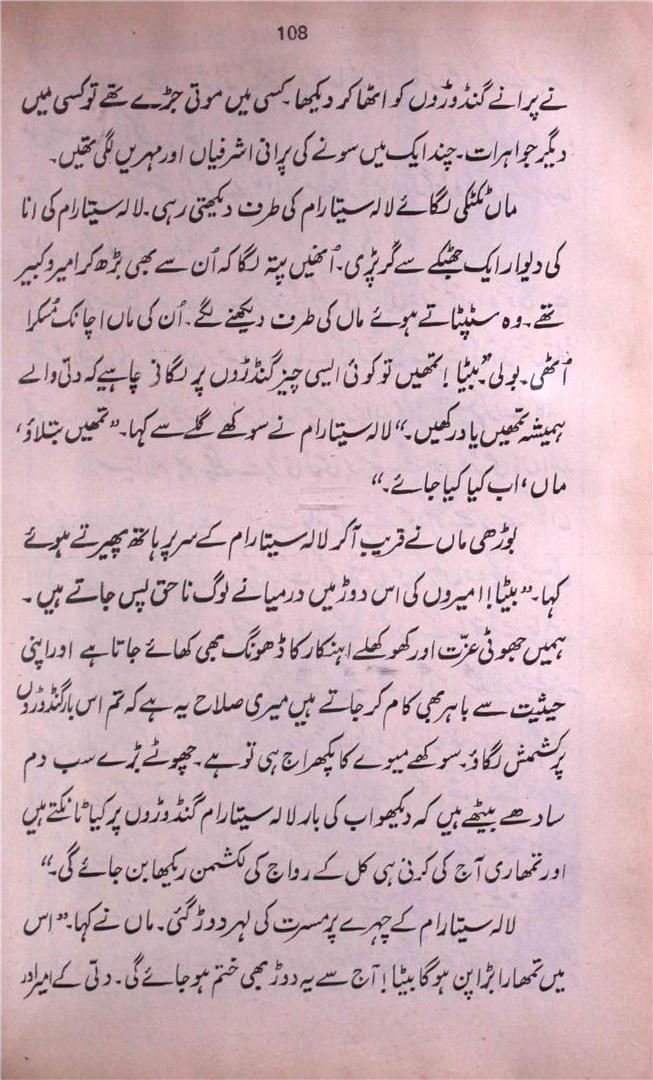 108
نے پرانے گنڈوڑوں کو اٹھا کر دیکھا۔ کسی میں موتی جڑے تھے تو کسی میں
دیگر جواہرات۔ چند ایک میں سونے کی پرانی اشرفیاں اور مہریں لگی تھیں۔
ماں ٹکٹکی لگائے لالہ سیتارام کی طرف دیکھتی رہی۔ لالہ سیتارام کی انا
کی دیوار ایک جھٹکے سے گر پڑی۔ اُنھیں پتہ لگا کہ اُن سے بھی بڑھ کر امیر و کبیر
تھے۔ وہ سٹپٹاتے ہوئے ماں کی طرف دیکھنے لگے۔ اُن کی ماں اچانک مُسکرا
اُٹھی۔ بولی "بیٹا! تمھیں تو کوئی ایسی چیز گنڈڑوں پر لگانی چاہیے کہ دلّی والے
ہمیشہ تمھیں یاد رکھیں۔" لالہ سیتارام نے سوکھے گلے سے کہا۔ "تمھیں بتلاؤ،
ماں، اب کیا کیا جائے۔"
بوڑھی ماں نے قریب آ کر لالہ سیتارام کے سر پر ہاتھ پھیرتے ہوئے
کہا۔ "بیٹا! امیروں کی اس دوڑ میں درمیانے لوگ ناحق پس جاتے ہیں۔
ہمیں جھوٹی عزّت اور کھوکھلے اہنکار کا ڈھونگ بھی کھائے جاتا ہے اور اپنی
حیثیت سے باہر بھی کام کر جاتے ہیں میری صلاح یہ ہے کہ تم اس بار گنڈوڑوں
پر کشمش لگاؤ۔ سوکھے میوے کا پکھراج ہی تو ہے۔ چھوٹے بڑے سب دم
سادھے بیٹھے ہیں کہ دیکھو اب کی بار لالہ سیتارام گنڈوڑوں پر کیا ٹانکتے ہیں
اور تمھاری آج کی کرنی ہی کل کے رواج کی لکشمن ریکھا بن جائے گی۔"
لالہ سیتارام کے چہرے پر مسرت کی لہر دوڑ گئی۔ ماں نے کہا۔ "اس
میں تمھارا بڑاپن ہوگا بیٹا! آج سے یہ دوڑ بھی ختم ہو جائے گی۔ دلّی کے امیر اور